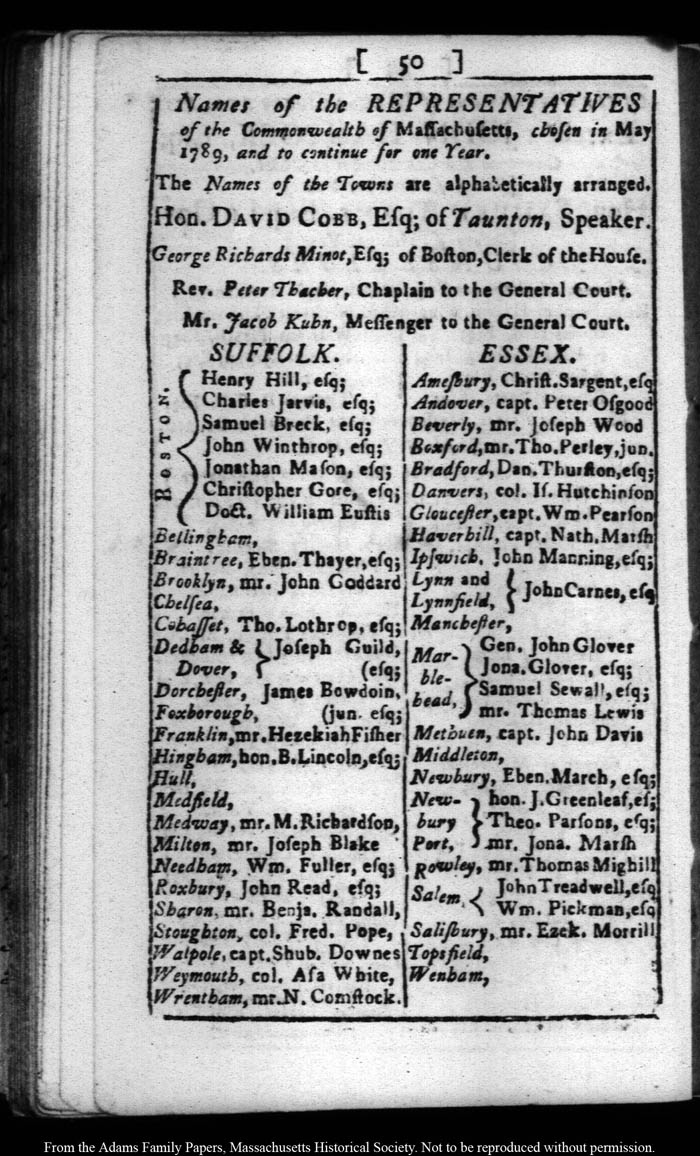 [ 50 ]
Names of the REPRESENTATIVES
of the Commonwealth of Maſſachuſetts, choſen in May
1789, and to continue for one Year.
The Names of the Towns are alphabetically arranged.
Hon. DAVID COBB, Eſq; of Taunton, Speaker.
George Richards Minot, Eſq; of Boſton, Clerk of the Houſe.
Rev. Peter Thacher, Chaplain to the General Court.
Mr. Jacob Kuhn, Meſſenger to the General Court.
SUFFOLK.
BOSTON.
Henry Hill, eſq;
Charles Jarvis, eſq;
Samuel Breck, eſq;
John Winthrop, eſq;
Jonathan Maſon, eſq;
Chriſtopher Gore, eſq;
Doct. William Euſtis
Bellingham,
Braintree, Eben. Thayer, eſq;
Brooklyn, mr. John Goddard
Chelſea,
Cohaſſet, Tho. Lothrop, eſq;
Dedham & } Joſeph Guild,
Dover, } (eſq;
Dorcheſter, James Bowdoin,
Foxborough, (jun. eſq;
Franklin, mr. Hezekiah Fiſher
Hingham, hon. B. Lincoln, eſq;
Hull,
Medfield,
Medway, mr. M. Richardſon,
Milton, mr. Joſeph Blake
Needham, Wm. Fuller, eſq;
Roxbury, John Read, eſq;
Sharon, mr. Benja. Randall,
Stoughton, col. Fred. Pope,
Walpole, capt. Shub. Downes
Weymouth, col. Aſa White,
Wrentham, mr. N. Comſtock.
ESSEX.
Ameſbury, Chriſt. Sargent, eſq
Andover, capt. Peter Oſgood
Beverly, mr. Joſeph Wood
Boxford, mr. Tho. Perley, jun.
Bradford, Dan. Thurſton, eſq;
Danvers, col. Iſ. Hutchinſon
Glouceſter, capt. Wm. Pearſon
Haverhill, capt. Nath. Marſh
Ipſwich, John Manning, eſq;
Lynn and
Lynnfield, } John Carnes, eſq
Mancheſter,
Mar-
ble-
head,
Gen. John Glover
Jona. Glover, eſq;
Samuel Sewall, eſq;
mr. Thomas Lewis
Methuen, capt. John Davis
Middleton,
Newbury, Eben. March, eſq;
New- } hon. J. Greenleaf, eſ;
bury } Theo. Parſons, eſq;
Port, } mr. Jona. Marſh
Rowley, mr. Thomas Mighill
Salem, { John Treadwell, eſq
Wm. Pickman, eſq
Saliſbury, mr. Ezek. Morrill
Topsfield,
Wenham,
From the Adams Family Papers, Massachusetts Historical Society. Not to be reproduced without permission.